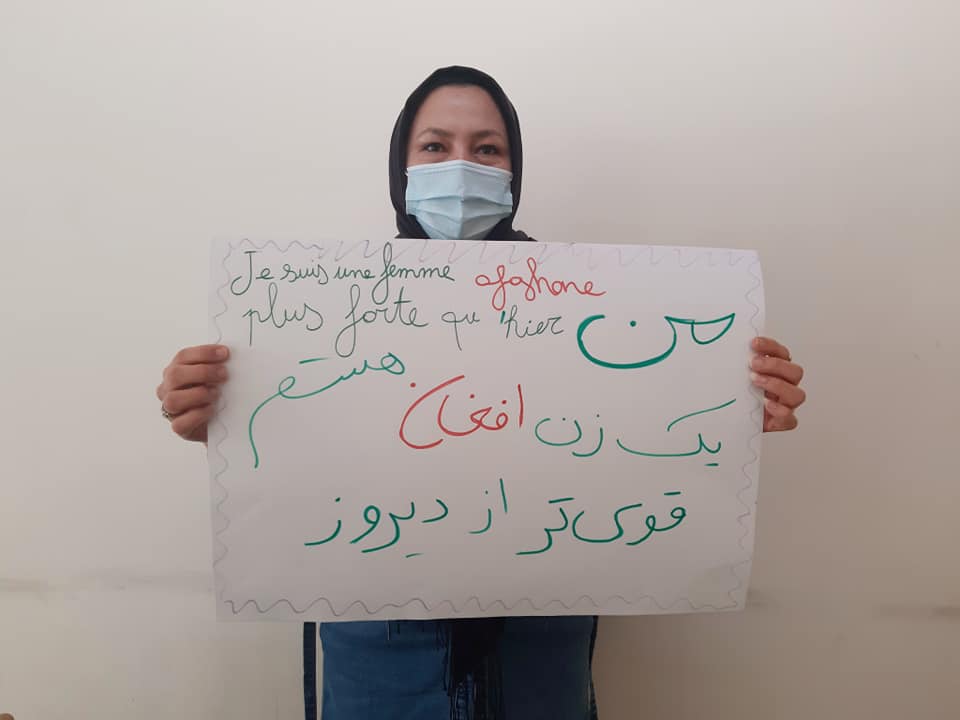 Je suis une femme afghane
plus forte qu'hier
من
یک زن افغان هستم
قوی‌تر از دیروز